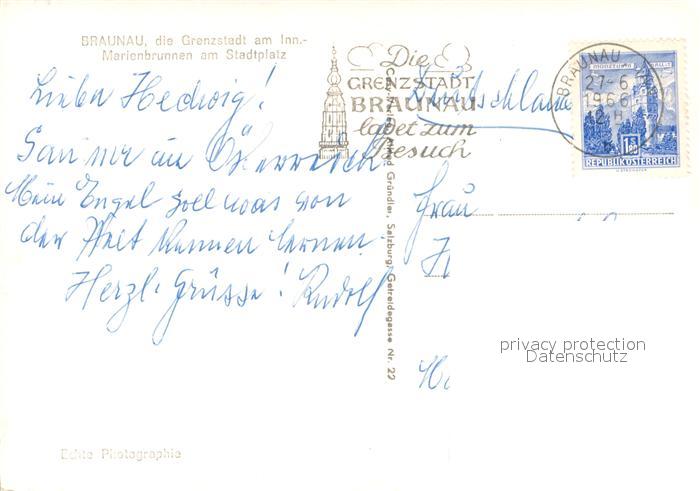 BRAUNAU, die Grenzstadt am Inn.-
Marienbrunnen am Stadtplatz
Liebe Hedwig!
San mr in Österreich
Mein Engel soll was von
der Welt kennen lernen.
Herzl. Grüsse! Rudolf
Echte Photographie
Die
GRENZSTADT
BRAUNAU
ladet zum
Besuch
Gründler, Salzburg, Getreidegasse Nr. 22
Deutschland
BRAUNAU
27-6
1966
MÜNZTURM
1.50
REPUBLIK ÖSTERREICH
Frau
H
privacy protection
Datenschutz